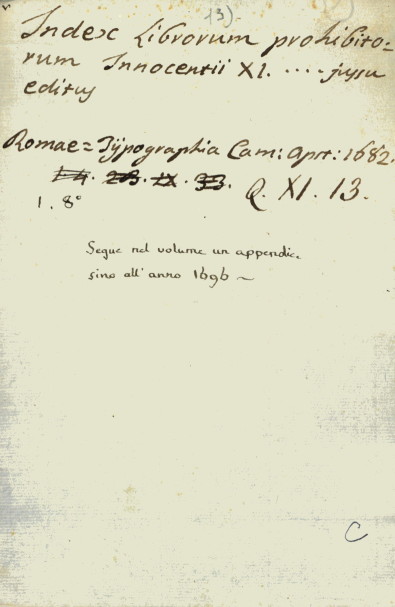 13).
Index Librorum prohibito=
rum Innocentii XI. .... jussu
editus
Romae = Typographia Cam: Apst: 1682.
Q. XI. 13.
1. 8°
Segue nel volume un appendice
sino all'anno 1696 ~
C